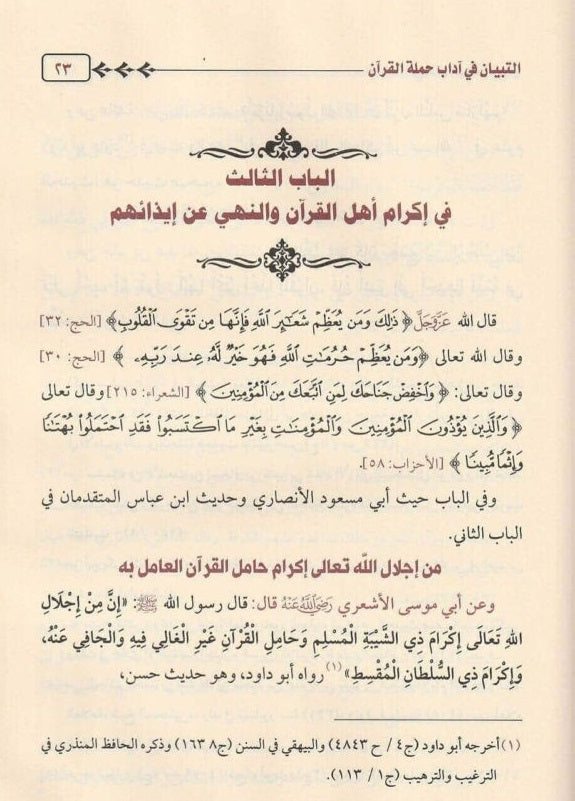 التبيان في آداب حملة القرآن ٢٣
الباب الثالث
في إكرام أهل القرآن والنهي عن إيذائهم
قال الله عَزَّوَجَلَّ ﴿ذَٰلِكَ وَمَن يُعَظِّمْ شَعَـٰٓئِرَ ٱللَّهِ فَإِنَّهَا مِن تَقْوَى ٱلْقُلُوبِ﴾ [الحج: ٣٢]
وقال الله تعالى ﴿وَمَن يُعَظِّمْ حُرُمَـٰتِ ٱللَّهِ فَهُوَ خَيْرٌ لَّهُۥ عِندَ رَبِّهِۦ﴾ [الحج: ٣٠]
وقال تعالى: ﴿وَٱخْفِضْ جَنَاحَكَ لِمَنِ ٱتَّبَعَكَ مِنَ ٱلْمُؤْمِنِينَ﴾ [الشعراء: ٢١٥] وقال تعالى
﴿وَٱلَّذِينَ يُؤْذُونَ ٱلْمُؤْمِنِينَ وَٱلْمُؤْمِنَـٰتِ بِغَيْرِ مَا ٱكْتَسَبُوا۟ فَقَدِ ٱحْتَمَلُوا۟ بُهْتَـٰنًا
وَإِثْمًا مُّبِينًا﴾ [الأحزاب: ٥٨].
وفي الباب حيث أبي مسعود الأنصاري وحديث ابن عباس المتقدمان في
الباب الثاني.
من إجلال الله تعالى إكرام حامل القرآن العامل به
وعن أبي موسى الأشعري رَضِيَ اللَّهُ عَنْهُ قال: قال رسول الله ﷺ: «إِنَّ مِنْ إِجْلَالِ
اللهِ تَعَالَى إِكْرَامَ ذِي الشَّيْبَةِ الْمُسْلِمِ وَحَامِلِ الْقُرْآنِ غَيْرِ الْغَالِي فِيهِ وَالْجَافِي عَنْهُ،
وَإِكْرَامَ ذِي السُّلْطَانِ الْمُقْسِطِ»(١) رواه أبو داود، وهو حديث حسن،
(١) أخرجه أبو داود (ج٤ / ح ٤٨٤٣) والبيهقي في السنن (ج٨ ١٦٣) وذكره الحافظ المنذري في
الترغيب والترهيب (ج١ / ١١٣).